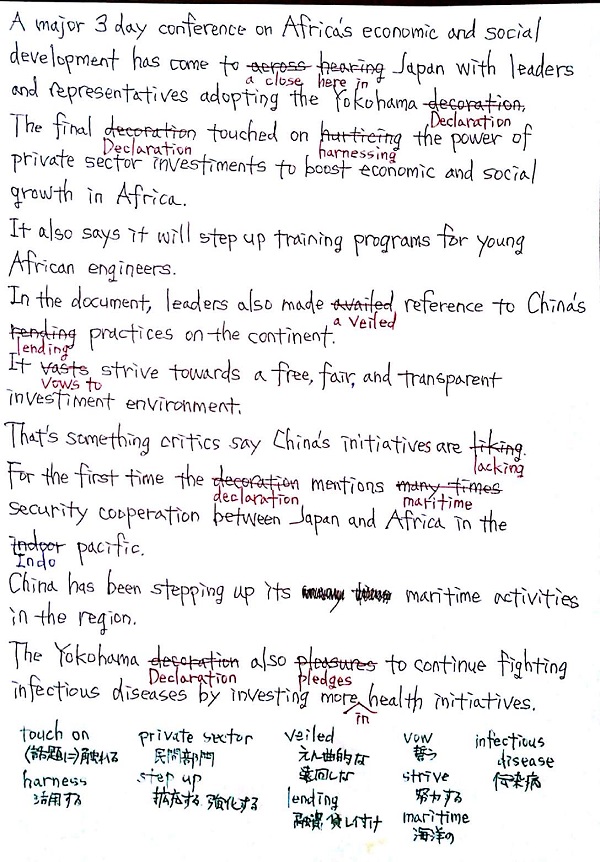 A major 3 day conference on Africa's economic and social
development has come to across hearing Japan with leaders
a close here in
and representatives adopting the Yokohama decoration,
Declaration
The final decoration touched on hurticing the power of
Declaration harnessing
private sector investiments to boost economic and social
growth in Africa.
It also says it will step up training programs for young
African engineers.
In the document, leaders also made availed reference to China's
a veiled
rending practices on the continent.
lending
It vasts strive towards a free, fair, and transparent
vows to
investiment environment.
That's something critics say China's initiatives are liking.
lacking
For the first time the decoration mentions many times
declaration maritime
security cooperation between Japan and Africa in the
indoor pacific.
Indo
China has been stepping up its maritime activities
in the region.
The Yokohama decoration also pleasures to continue fighting
Declaration pledges
infectious diseases by investing more health initiatives.
in
touch on
(話題に)触れる
harness
活用する
private sector
民間部門
step up
拡充する 強化する
veiled
えん曲的な
遠回しな
lending
融資 貸し付け
vow
誓う
strive
努力する
maritime
海洋の
infectious
disease
伝染病